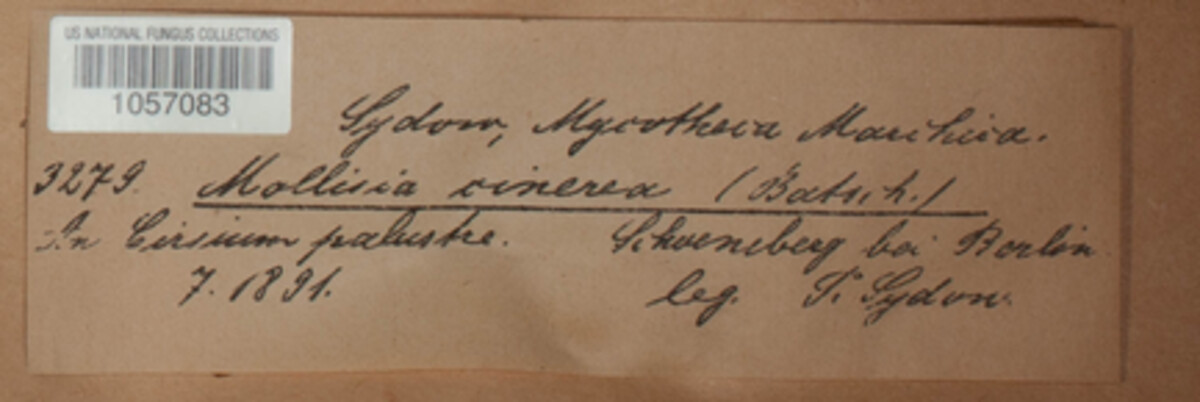 US NATIONAL FUNGUS COLLECTIONS
1057083
Sydow, Mycotheca Marchica.
3279. Mollisia cinerea (Batsch.)
In Cirsium palustre. Schoeneberg bei Berlin.
7. 1891. leg. P. Sydow.